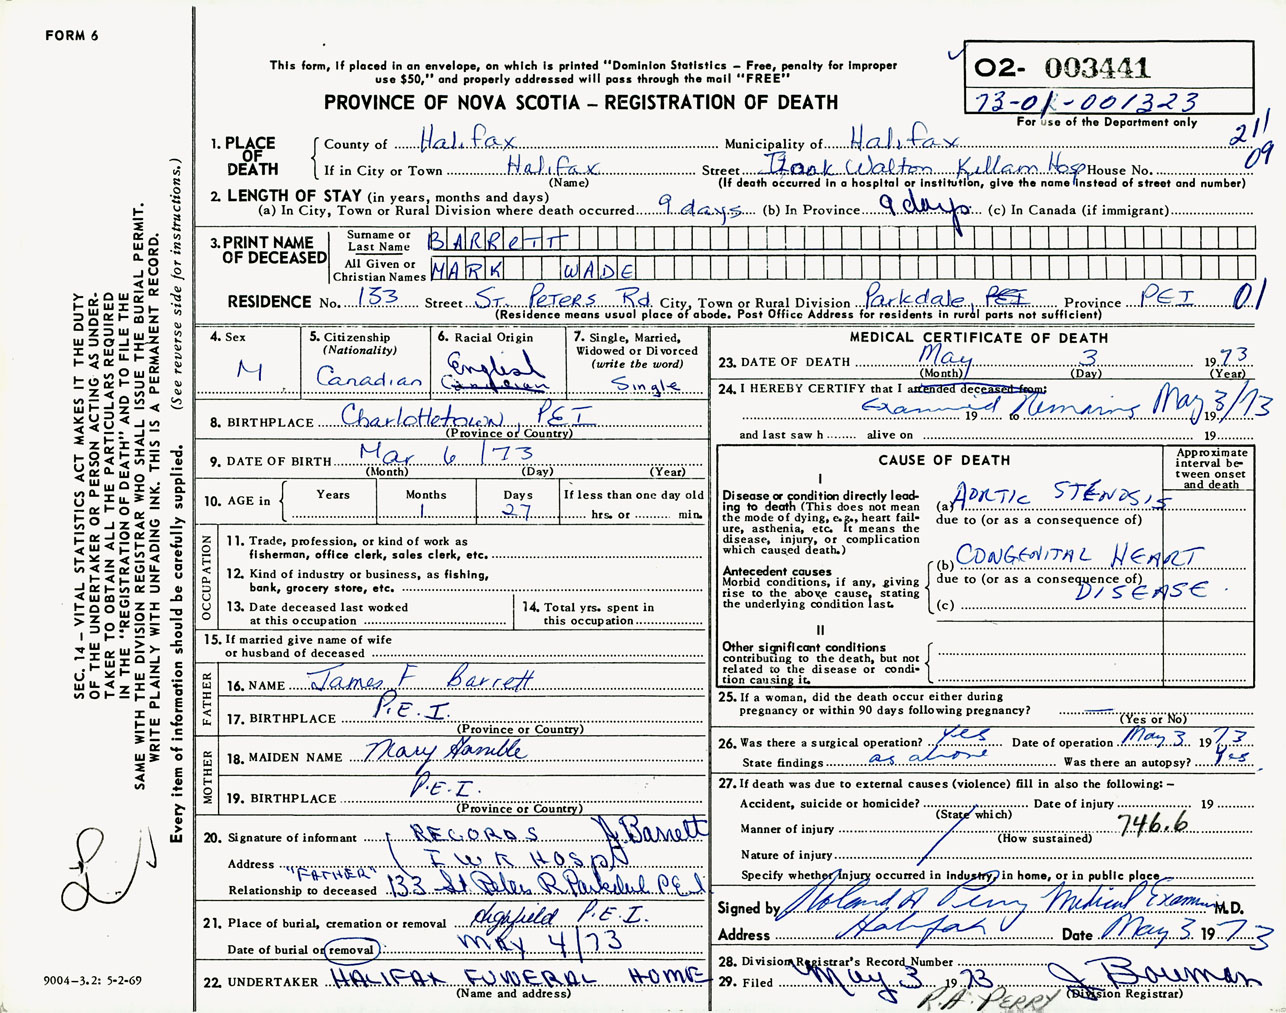 FORM 6
This form, if placed in an envelope, on which is printed "Dominion Statistics – Free, penalty for improper
use $50," and properly addressed will pass through the mail "FREE"
PROVINCE OF NOVA SCOTIA – REGISTRATION OF DEATH
02- 003441
73-01-001323
For use of the Department only
211
09
1. PLACE OF DEATH
County of Halifax Municipality of Halifax
If in City or Town Halifax Street Izaak Walton Killam Hosp House No.
(Name) (If death occurred in a hospital or institution, give the name instead of street and number)
2. LENGTH OF STAY (in years, months and days)
(a) In City, Town or Rural Division where death occurred 9 days (b) In Province 9 days (c) In Canada (if immigrant)
3. PRINT NAME OF DECEASED
Surname or Last Name BARRETT
All Given or Christian Names MARK WADE
RESIDENCE No. 133 Street St. Peters Rd City, Town or Rural Division Parkdale, PEI Province PEI 01
(Residence means usual place of abode. Post Office Address for residents in rural parts not sufficient)
4. Sex
M
5. Citizenship
(Nationality)
Canadian
6. Racial Origin
English
Canadian
7. Single, Married,
Widowed or Divorced
(write the word)
Single
8. BIRTHPLACE Charlottetown, PEI
(Province or Country)
9. DATE OF BIRTH Mar 6 /73
(Month) (Day) (Year)
10. AGE in
Years Months Days If less than one day old
1 27 hrs. or min.
OCCUPATION
11. Trade, profession, or kind of work as
fisherman, office clerk, sales clerk, etc.
12. Kind of industry or business, as fishing,
bank, grocery store, etc.
13. Date deceased last worked
at this occupation
14. Total yrs. spent in
this occupation
15. If married give name of wife
or husband of deceased
FATHER
16. NAME James F Barrett
17. BIRTHPLACE P.E.I.
(Province or Country)
MOTHER
18. MAIDEN NAME Mary Gamble
19. BIRTHPLACE P.E.I.
(Province or Country)
20. Signature of informant RECORDS J. Barrett
Address IWK HOSP
"FATHER"
Relationship to deceased 133 St Peters R. Parkdale P.E.I
21. Place of burial, cremation or removal Highfield P.E.I.
Date of burial or removal MAY 4/73
22. UNDERTAKER HALIFAX FUNERAL HOME
(Name and address)
MEDICAL CERTIFICATE OF DEATH
23. DATE OF DEATH May 3 1973
(Month) (Day) (Year)
24. I HEREBY CERTIFY that I attended deceased from:
Examined 19 to Remains May 3/73 19
and last saw h alive on 19
CAUSE OF DEATH
Approximate
interval be-
tween onset
and death
I
Disease or condition directly lead-
ing to death (This does not mean
the mode of dying, e.g., heart fail-
ure, asthenia, etc. It means the
disease, injury, or complication
which caused death.)
(a) AORTIC STENOSIS
due to (or as a consequence of)
Antecedent causes
Morbid conditions, if any, giving
rise to the above cause, stating
the underlying condition last.
(b) CONGENITAL HEART
due to (or as a consequence of)
DISEASE.
(c)
II
Other significant conditions
contributing to the death, but not
related to the disease or condi-
tion causing it.
25. If a woman, did the death occur either during
pregnancy or within 90 days following pregnancy? —
(Yes or No)
26. Was there a surgical operation? yes Date of operation May 3 1973
State findings as above Was there an autopsy? Yes.
27. If death was due to external causes (violence) fill in also the following: –
Accident, suicide or homicide? Date of injury 19
(State which)
Manner of injury 746.6
(How sustained)
Nature of injury
Specify whether injury occurred in Industry, in home, or in public place
Signed by Roland A Perry Medical Examiner M.D.
Address Halifax Date May 3 1973
28. Division Registrar's Record Number
29. Filed May 3 1973 J Bowman
(Division Registrar)
R.A. PERRY
SEC. 14 – VITAL STATISTICS ACT MAKES IT THE DUTY
OF THE UNDERTAKER OR PERSON ACTING AS UNDER-
TAKER TO OBTAIN ALL THE PARTICULARS REQUIRED
IN THE "REGISTRATION OF DEATH" AND TO FILE THE
SAME WITH THE DIVISION REGISTRAR WHO SHALL ISSUE THE BURIAL PERMIT.
WRITE PLAINLY WITH UNFADING INK. THIS IS A PERMANENT RECORD.
Every item of information should be carefully supplied. (See reverse side for instructions.)
9004–3.2: 5-2-69